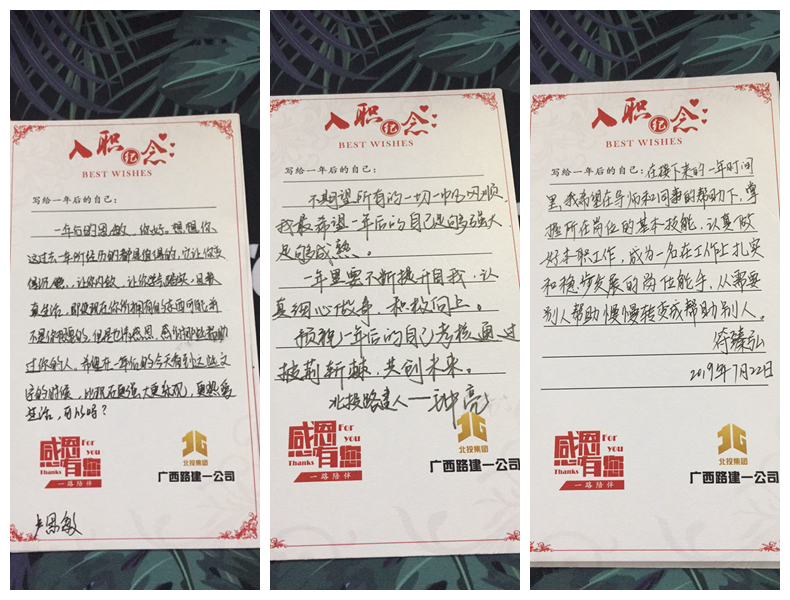 入职纪念
BEST WISHES
写给一年后的自己：
一年后的思敏，你好。想跟你
这过去一年所经历的都是值得的，它让你
真生活，即使现在你所拥有的东西可能并
不是你想要的，但是也请感恩，感谢那些帮助
过你的人，希望在一年后的今天看到这些文
字的时候，比现在更强大更乐观，更热爱
生活，可以吗？
感恩有您
For you
Thanks
一路陪伴
北投集团
广西路建一公司
入职纪念
BEST WISHES
写给一年后的自己：
不期望所有的一切一帆风顺，
我最希望一年后的自己足够强大，
足够成熟。
一年里要不断提升自我，认
真细心做事，积极向上。
预祝一年后的自己考核通过
披荆斩棘，共创未来。
北投路建人——钟亮
感恩有您
For you
Thanks
一路陪伴
北投集团
广西路建一公司
入职纪念
BEST WISHES
写给一年后的自己：在接下来的一年时间
里，我希望在导师和同事的帮助下，掌
握所在岗位的基本技能，认真做
好本职工作，成为一名在工作上扎实
和稳步发展的岗位能手，从需要
别人帮助慢慢转变成帮助别人。
2019年7月22日
感恩有您
For you
Thanks
一路陪伴
北投集团
广西路建一公司